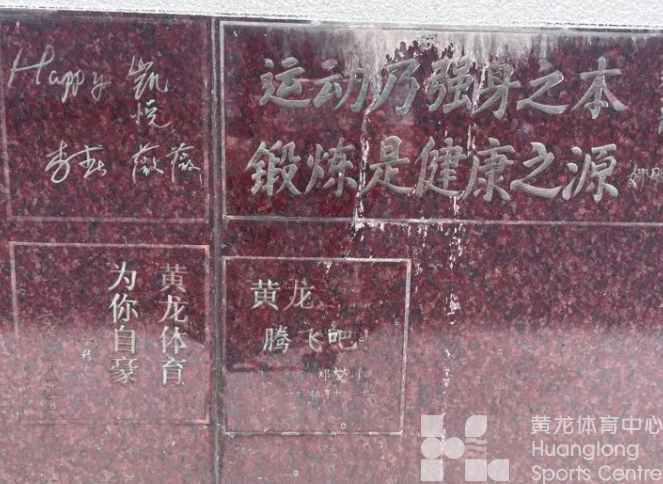 Happy 凯
悦
李喆 薇薇
运动乃强身之本
锻炼是健康之源
黄龙体育
为你自豪
君
黄龙
腾飞吧
黄龙体育中心
Huanglong
Sports Centre